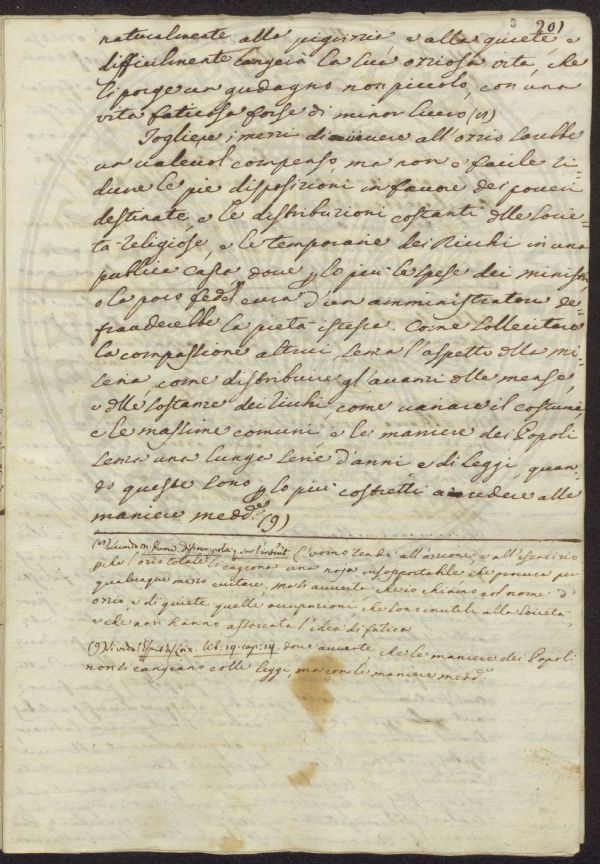 201
naturalmente alla pigrizia e alla quiete, e
difficilmente cangerà la sua oziosa vita, che
li porge un guadagno non piccolo, con una
vita faticosa forse di minor lucro (n)
Togliere i mezzi di vivere all'ozio sarebbe
un valevol compenso, ma non è facile ri-
durre le pie disposizioni in favore dei poveri
destinate, e le distribuzioni costanti delle Socie-
tà religiose, e le temporarie dei Ricchi in una
publica cassa dove p lo più le spese dei ministri
o la poco fedel cura d'un amministratore de-
frauderebbe la pietà istessa. Come sollecitare
la compassione altrui, senza l'aspetto della mi-
seria, come distribuire gl'avanzi delle mense,
e delle sostanze dei ricchi, come variare il costume,
e le massime comuni, e le maniere dei Popoli
senza una lunga serie d'anni e di leggi, quan-
do queste sono p lo più costretti a cedere alle
maniere medde (9)
(n) Secondo m. Hume l'uomo tende all'azione, e all'esercizio
l'ozio totale li cagiona una noja insopportabile, che procura per
qualunque mezzo evitare, ma si avverta che io chiamo col nome d'
ozio, e di quiete quelle occupazioni che sono inutili alla Società,
e che non hanno associata l'idea di fatica
(9) Si veda l'Esprit des Loix. lib: 19. cap: 14. dove avverte, che le maniere dei Popoli
non si cangiano colle leggi, ma con le maniere medde